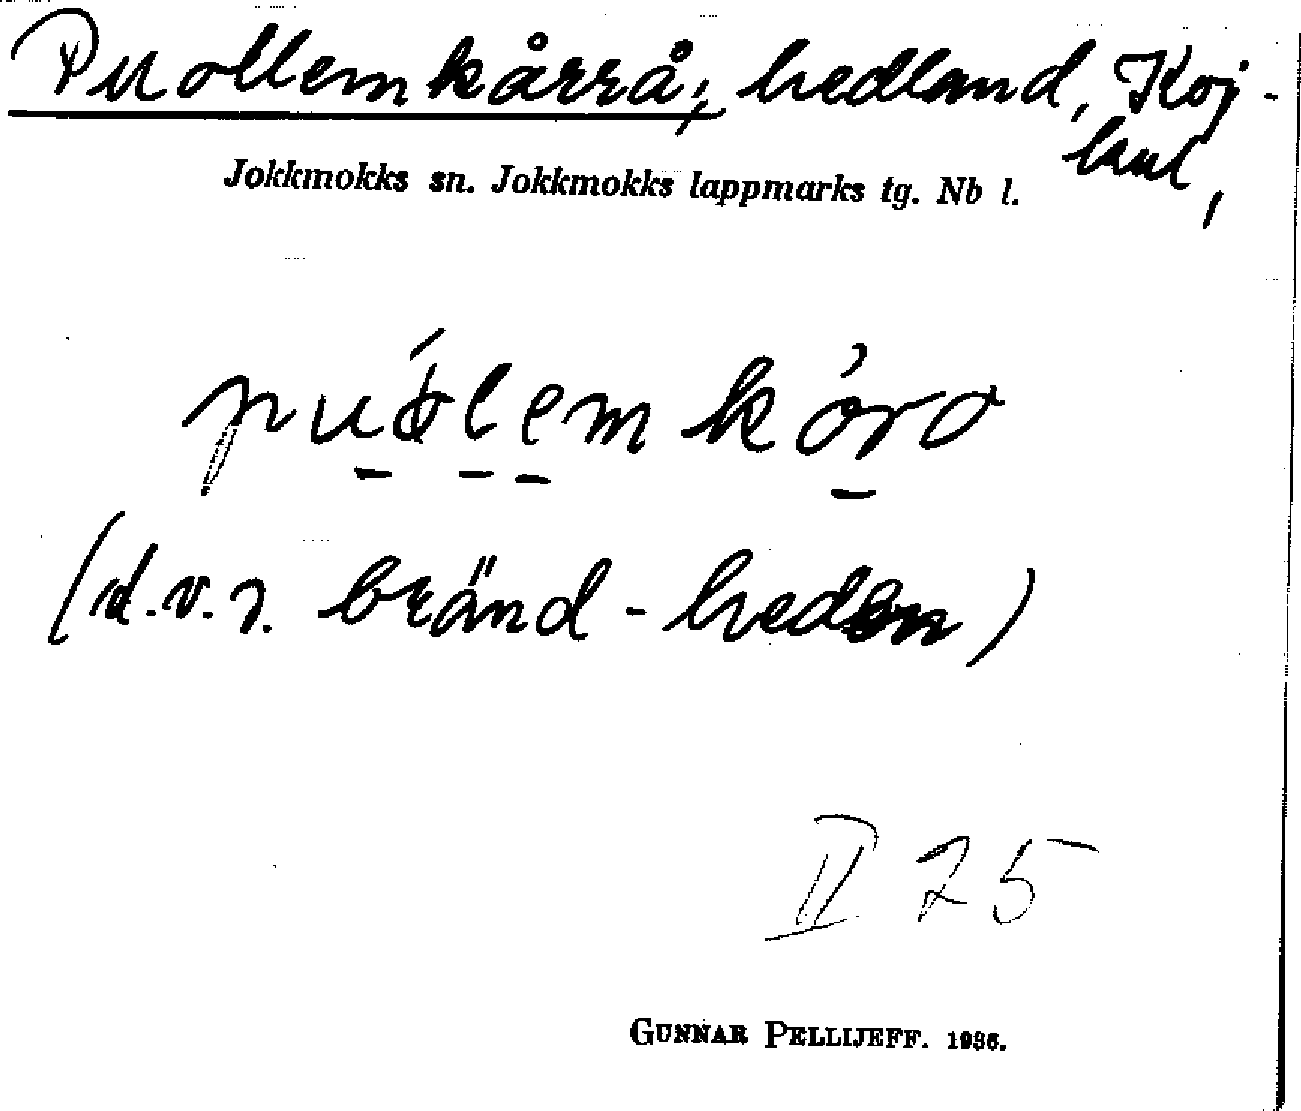 Puollemkårrå, hedland, Koj-
baul,
Jokkmokks sn. Jokkmokks lappmarks tg. Nb l.
puólem kóro
(d.v.s. bränd-heden)
II 25
GUNNAR PELLIJEFF. 1936.